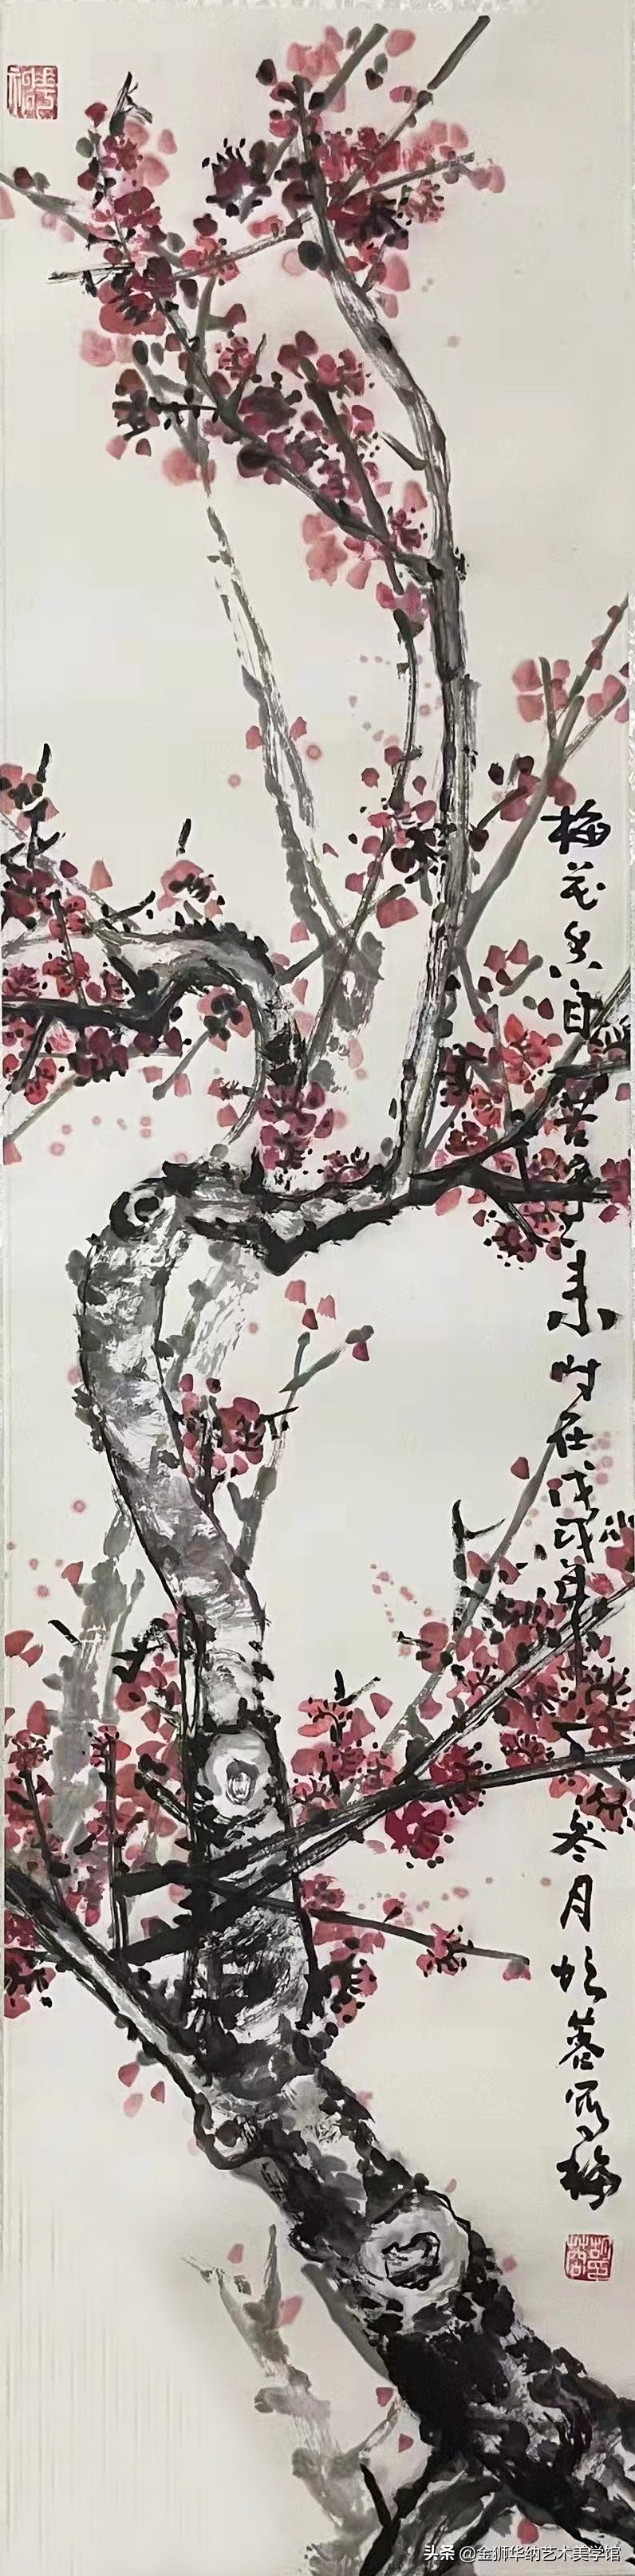 梅花香自苦寒来时在戊戌年
冬月胡蓉写梅
头条 @金狮华纳艺术美学馆